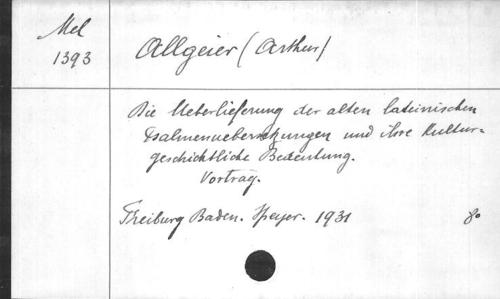 Mel
1393
Allgeier (Arthur)
Die Ueberlieferung der alten lateinischen
Psalmenuebersetzungen und ihre Kultur-
geschichtliche Bedeutung.
Vortrag.
Freiburg Baden. Speyer. 1931 8°